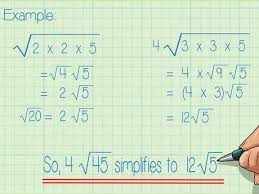 Example.
√2 x 2 x 5
= √4 √5
= 2 √5
√20 = 2 √5
4 √3 x 3 x 5
= 4 x √9 √5
= (4 x 3)√5
= 12√5
So, 4 √45 simplifies to 12√5